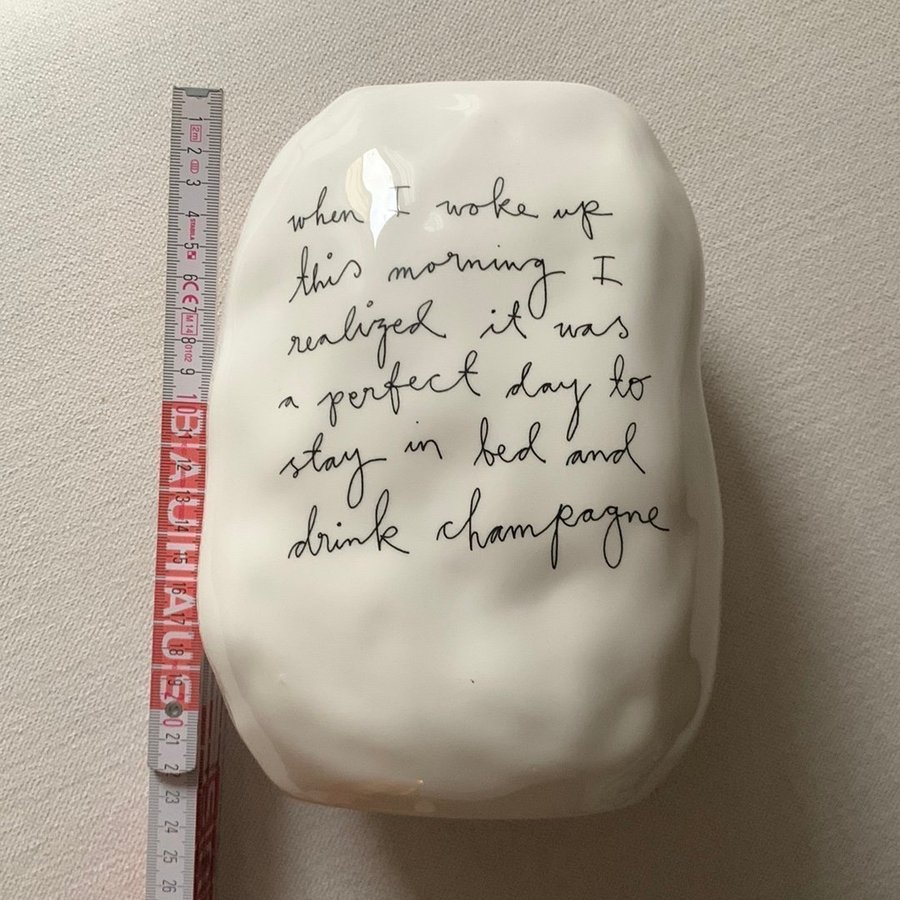 when I woke up
this morning I
realized it was
a perfect day to
stay in bed and
drink champagne
1
2m
2
3
4
STABILA
5
6
CE
7
M14
0102
8
9
10
11
12
13
14
15
16
17
18
19
20
21
23
24
25
26
BAUHAUS